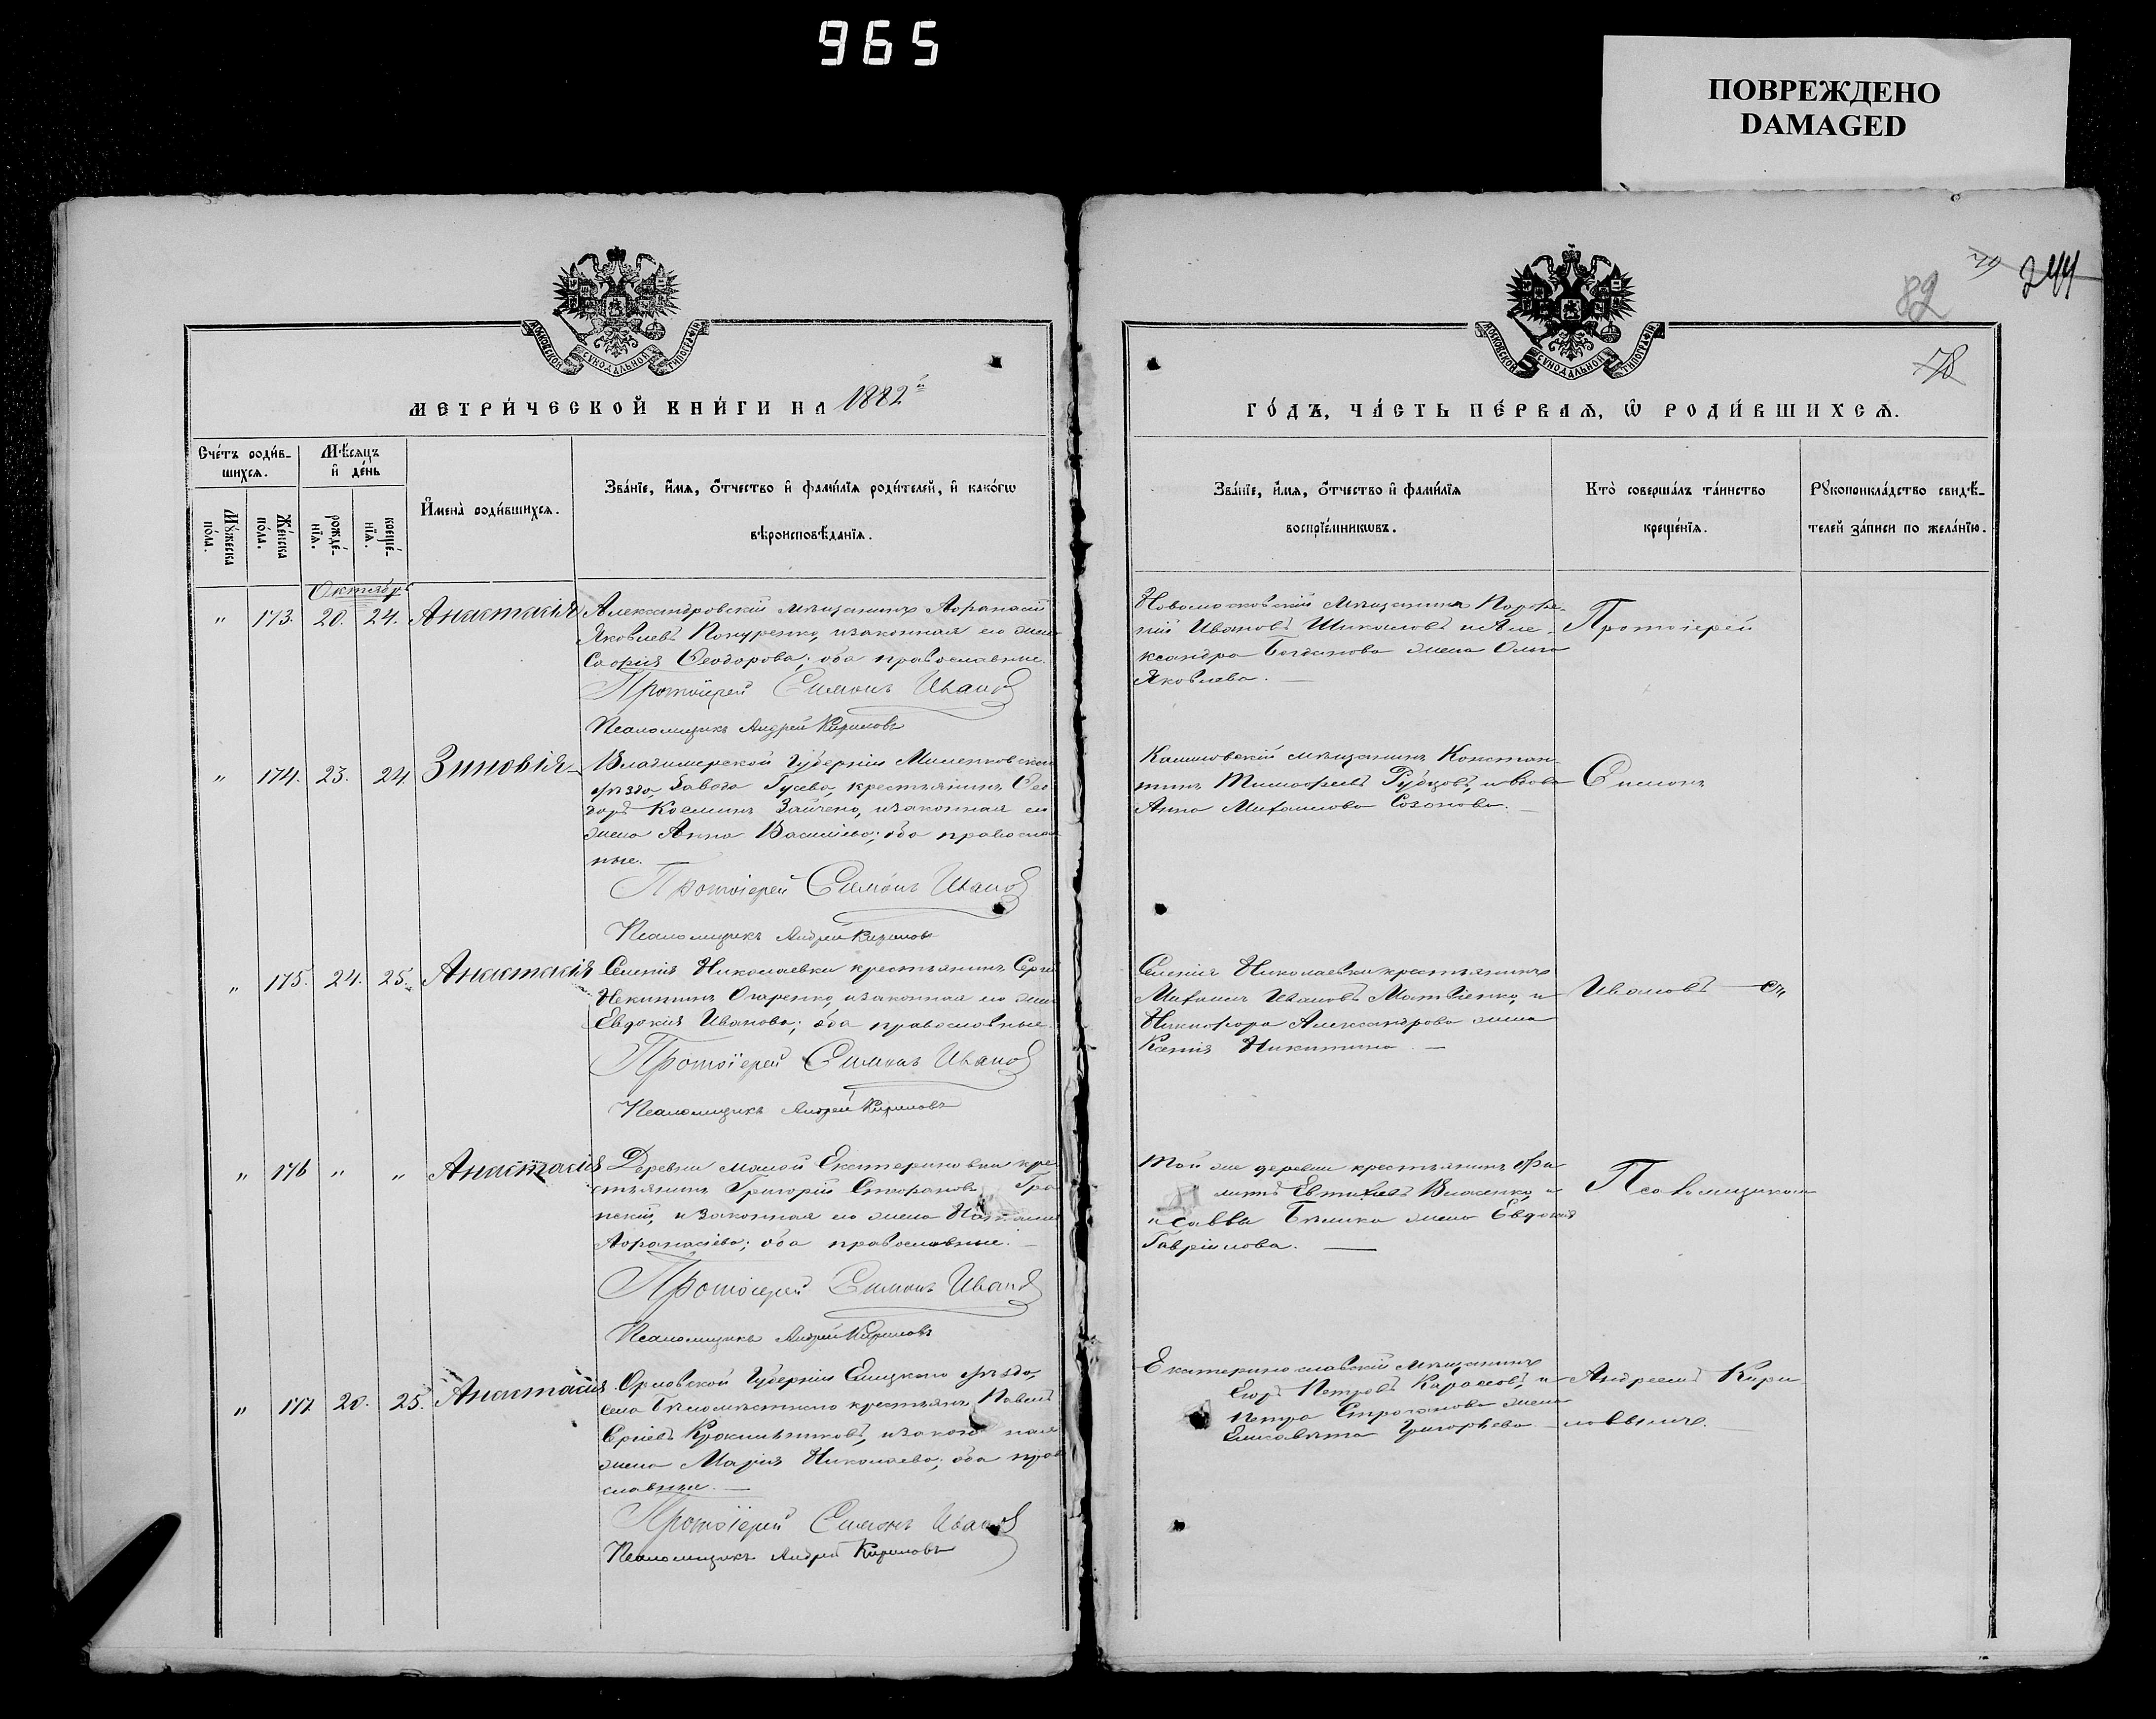 965
ПОВРЕЖДЕНО
DAMAGED
244
82
78
МОСКОВСКОЙ СѴНОДАЛЬНОЙ ТИПОГРАФІИ
МОСКОВСКОЙ СѴНОДАЛЬНОЙ ТИПОГРАФІИ
МЕТРИ́ЧЕСКОЙ КНИ́ГИ НА 1882й
ГО́ДЪ, ЧА́СТЬ ПЕ́РВАѦ, Ѡ РОДИ́ВШИХСѦ.
Сче́тъ роди́в-
шихсѧ.
Мѣ́сѧцъ
и҆ де́нь
Мꙋ́жеска
по́ла.
Же́нска
по́ла.
рожде́-
нїѧ.
креще́-
нїѧ.
И҆мена̀ роди́вшихсѧ.
Зва́нїе, и҆́мѧ, ѻ҆́тчество и҆ фами́лїѧ роди́телей, и҆ како́гѡ
вѣроисповѣ́данїѧ.
Зва́нїе, и҆́мѧ, ѻ҆́тчество и҆ фами́лїѧ
воспрїе́мникѡвъ.
Кто̀ соверша́лъ та́инство
креще́нїѧ.
Рꙋкоприкла́дство свидѣ́-
телей за́писи по жела́нїю.
Октябрь
" 173. 20. 24. Анастасія
Александровскій мѣщанинъ Афанасій
Яковлевъ Понуренко, и законная его жена
Софія Ѳеодорова; оба православные.
Протоіерей Симонъ Ивановъ
Псаломщикъ Андрей Кириловъ
Новомосковскій мѣщанинъ Порфи-
рій Ивановъ Шикаловъ и Але-
ксандра Богданова жена Ольга
Яковлева. —
Протоіерей
" 174. 23. 24 Зиновія
Владимірской Губерніи Меленковскаго
уѣзда, Завода Гусева, крестьянинъ Ѳео-
доръ Косминъ Зайчено, и законная его
жена Анна Васильева; оба православ-
ные.
Протоіерей Симонъ Ивановъ
Псаломщикъ Андрей Кириловъ
мѣщанинъ Констан-
тинъ Тимофеевъ Рубцовъ, и вдова
Анна Михаилова Созонова. —
Симонъ
" 175. 24. 25. Анастасія
Селенія Николаевки крестьянинъ Сергій
Никитинъ Огаренко, и законная его жена
Евдокія Иванова; оба православные.
Протоіерей Симонъ Ивановъ
Псаломщикъ Андрей Кириловъ
Селенія Николаевки крестьянинъ
Михаилъ Ивановъ Матвіенко, и
Никифора Александрова жена
Ксенія Никитина. —
Ивановъ — съ
" 176 " " Анастасія
Деревни малой Екатериновки кре-
стьянинъ Григорій Стефановъ
и законная его жена Наталія
Афанасіева; оба православные. —
Протоіерей Симонъ Ивановъ
Псаломщикъ Андрей Кириловъ
Той же деревни крестьянинъ Фи-
липъ Евтихіевъ Власенко, и
Саввы Бѣлика жена Евдокія
Гавріилова. —
Псаломщикомъ
" 177. 20. 25. Анастасія
Орловской Губерніи Елецкаго уѣзда,
села Бѣломѣстнаго крестьянъ Павелъ
Сергіевъ и законная
жена Марія Николаева; оба право-
славные. —
Протоіерей Симонъ Ивановъ
Псаломщикъ Андрей Кириловъ
Екатеринославскій мѣщанинъ
Егоръ Петровъ Карасевъ, и
Петра Строганова жена
Елисавета Григорьева —
Андреемъ Кири-
ловымъ. —